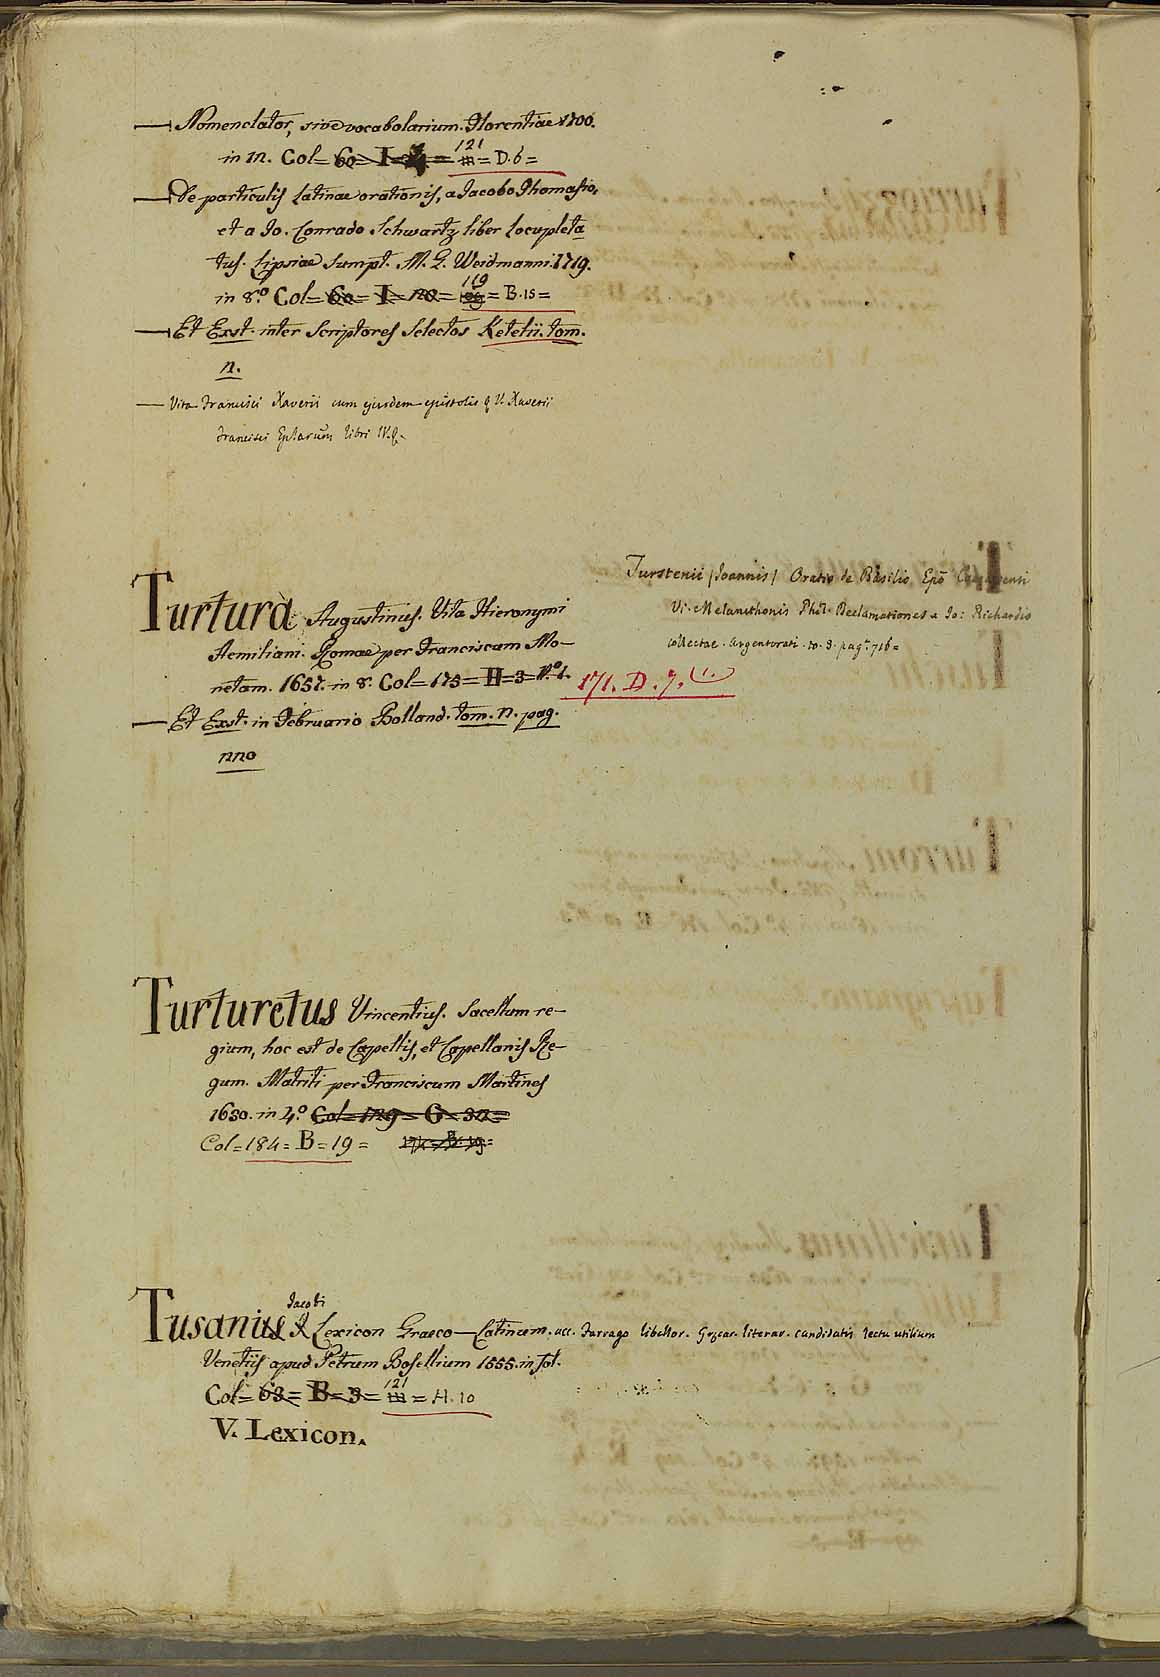 — Nomenclator, sive vocabolarium. Florentiae 1700.
in 12. Col= 60= I= = 121 = D. 6 =
— De particulis Latinae orationis, a Jacobo Thomasio,
et a Jo. Conrado Schwartz liber locupleta
tus. Lipsiae Sumpt. M. G. Weidmanni. 1719.
in 8.º Col= 60= I= 20= 119 = B. 15 =
— Et Exst. inter Scriptores Selectos Ketelii. tom.
2.
— Vita Francisci Xaverii cum ejusdem epistolis & V. Xaverii
Francisci Eplarum libri IV. &.
Turstenii (Joannis) Oratio de Basilio Epõ
V. Melancthonis Phil. Declamationes a Jo: Richardio
collectae. Argentorati. to. 3. pag. 716 =
Turtura Augustinus. Vita Hieronymi
Aemiliani. Romae per Franciscum Mo-
netam. 1657. in 8. Col= 175= H= 3= N.º 1.
171. D. 7. (1.)
— Et Exst. in Februario Bolland. tom. 2. pag.
220
Turturetus Vincentius. Sacellum re-
gium, hoc est de Capellis, et Capellanis Re-
gum. Matriti per Franciscum Martines
1630. in 4.º Col= 129= G= 32=
Col= 184= B= 19 =
Jacobi
Tusanius Lexicon Graeco-Latinum. acc. Farrago libellor. Graecar. literar. candidatis lectu utilium
Venetiis apud Petrum Bosellium 1555. in fol.
Col= 63= B= 3= 121 = H. 10
V. Lexicon.